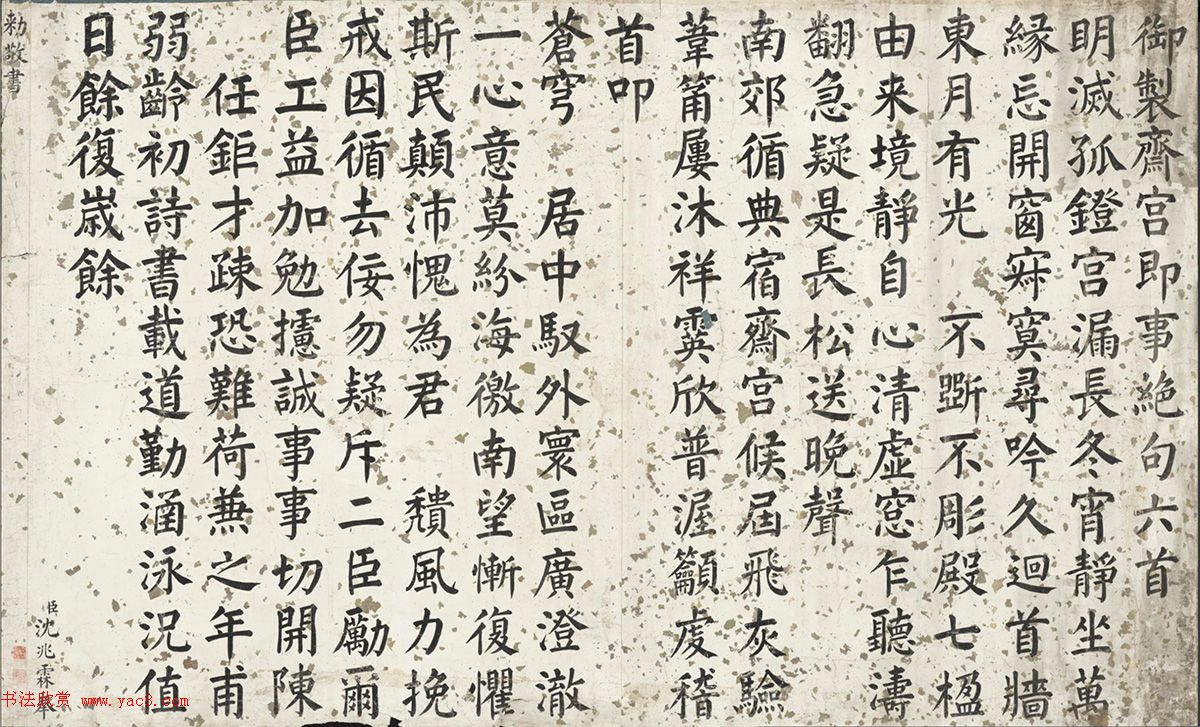 御製齋宮即事絶句六首
明滅孤鐙宮漏長冬宵靜坐萬
緣忘開窗寂寞尋吟久迴首牆
東月有光　不斲不彫殿七楹
由来境靜自心清虛窓乍聽濤
翻急疑是長松送晚聲
南郊循典宿齋宮候屆飛灰驗
葦莆屢沐祥霙欣普渥籲虔稽
首叩
蒼穹　居中馭外寰區廣澄澈
一心意莫紛海徼南望慚復懼
斯民顛沛愧為君　穨風力挽
戒因循去佞勿疑斥二臣勵爾
臣工益加勉攄誠事事切開陳
任鉅才疎恐難荷兼之年甫
弱齡初詩書載道勤涵泳況值
日餘復嵗餘
臣沈兆霖奉
勅敬書
书法欣赏 www.yac8.com